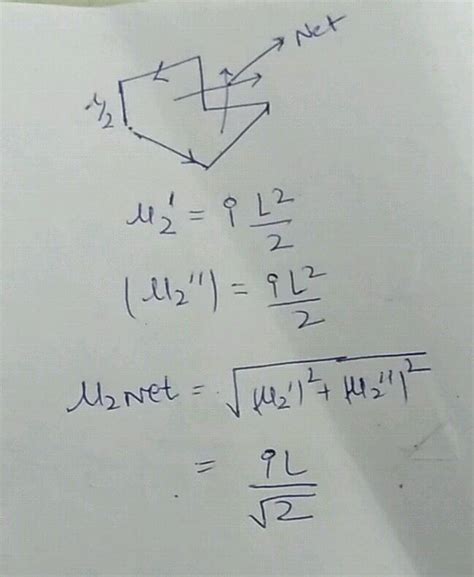 Net
L/2
μ₂' = i L²/2
(μ₂'') = iL²/2
μ₂net = √((μ₂')² + (μ₂'')²)
= iL/√2